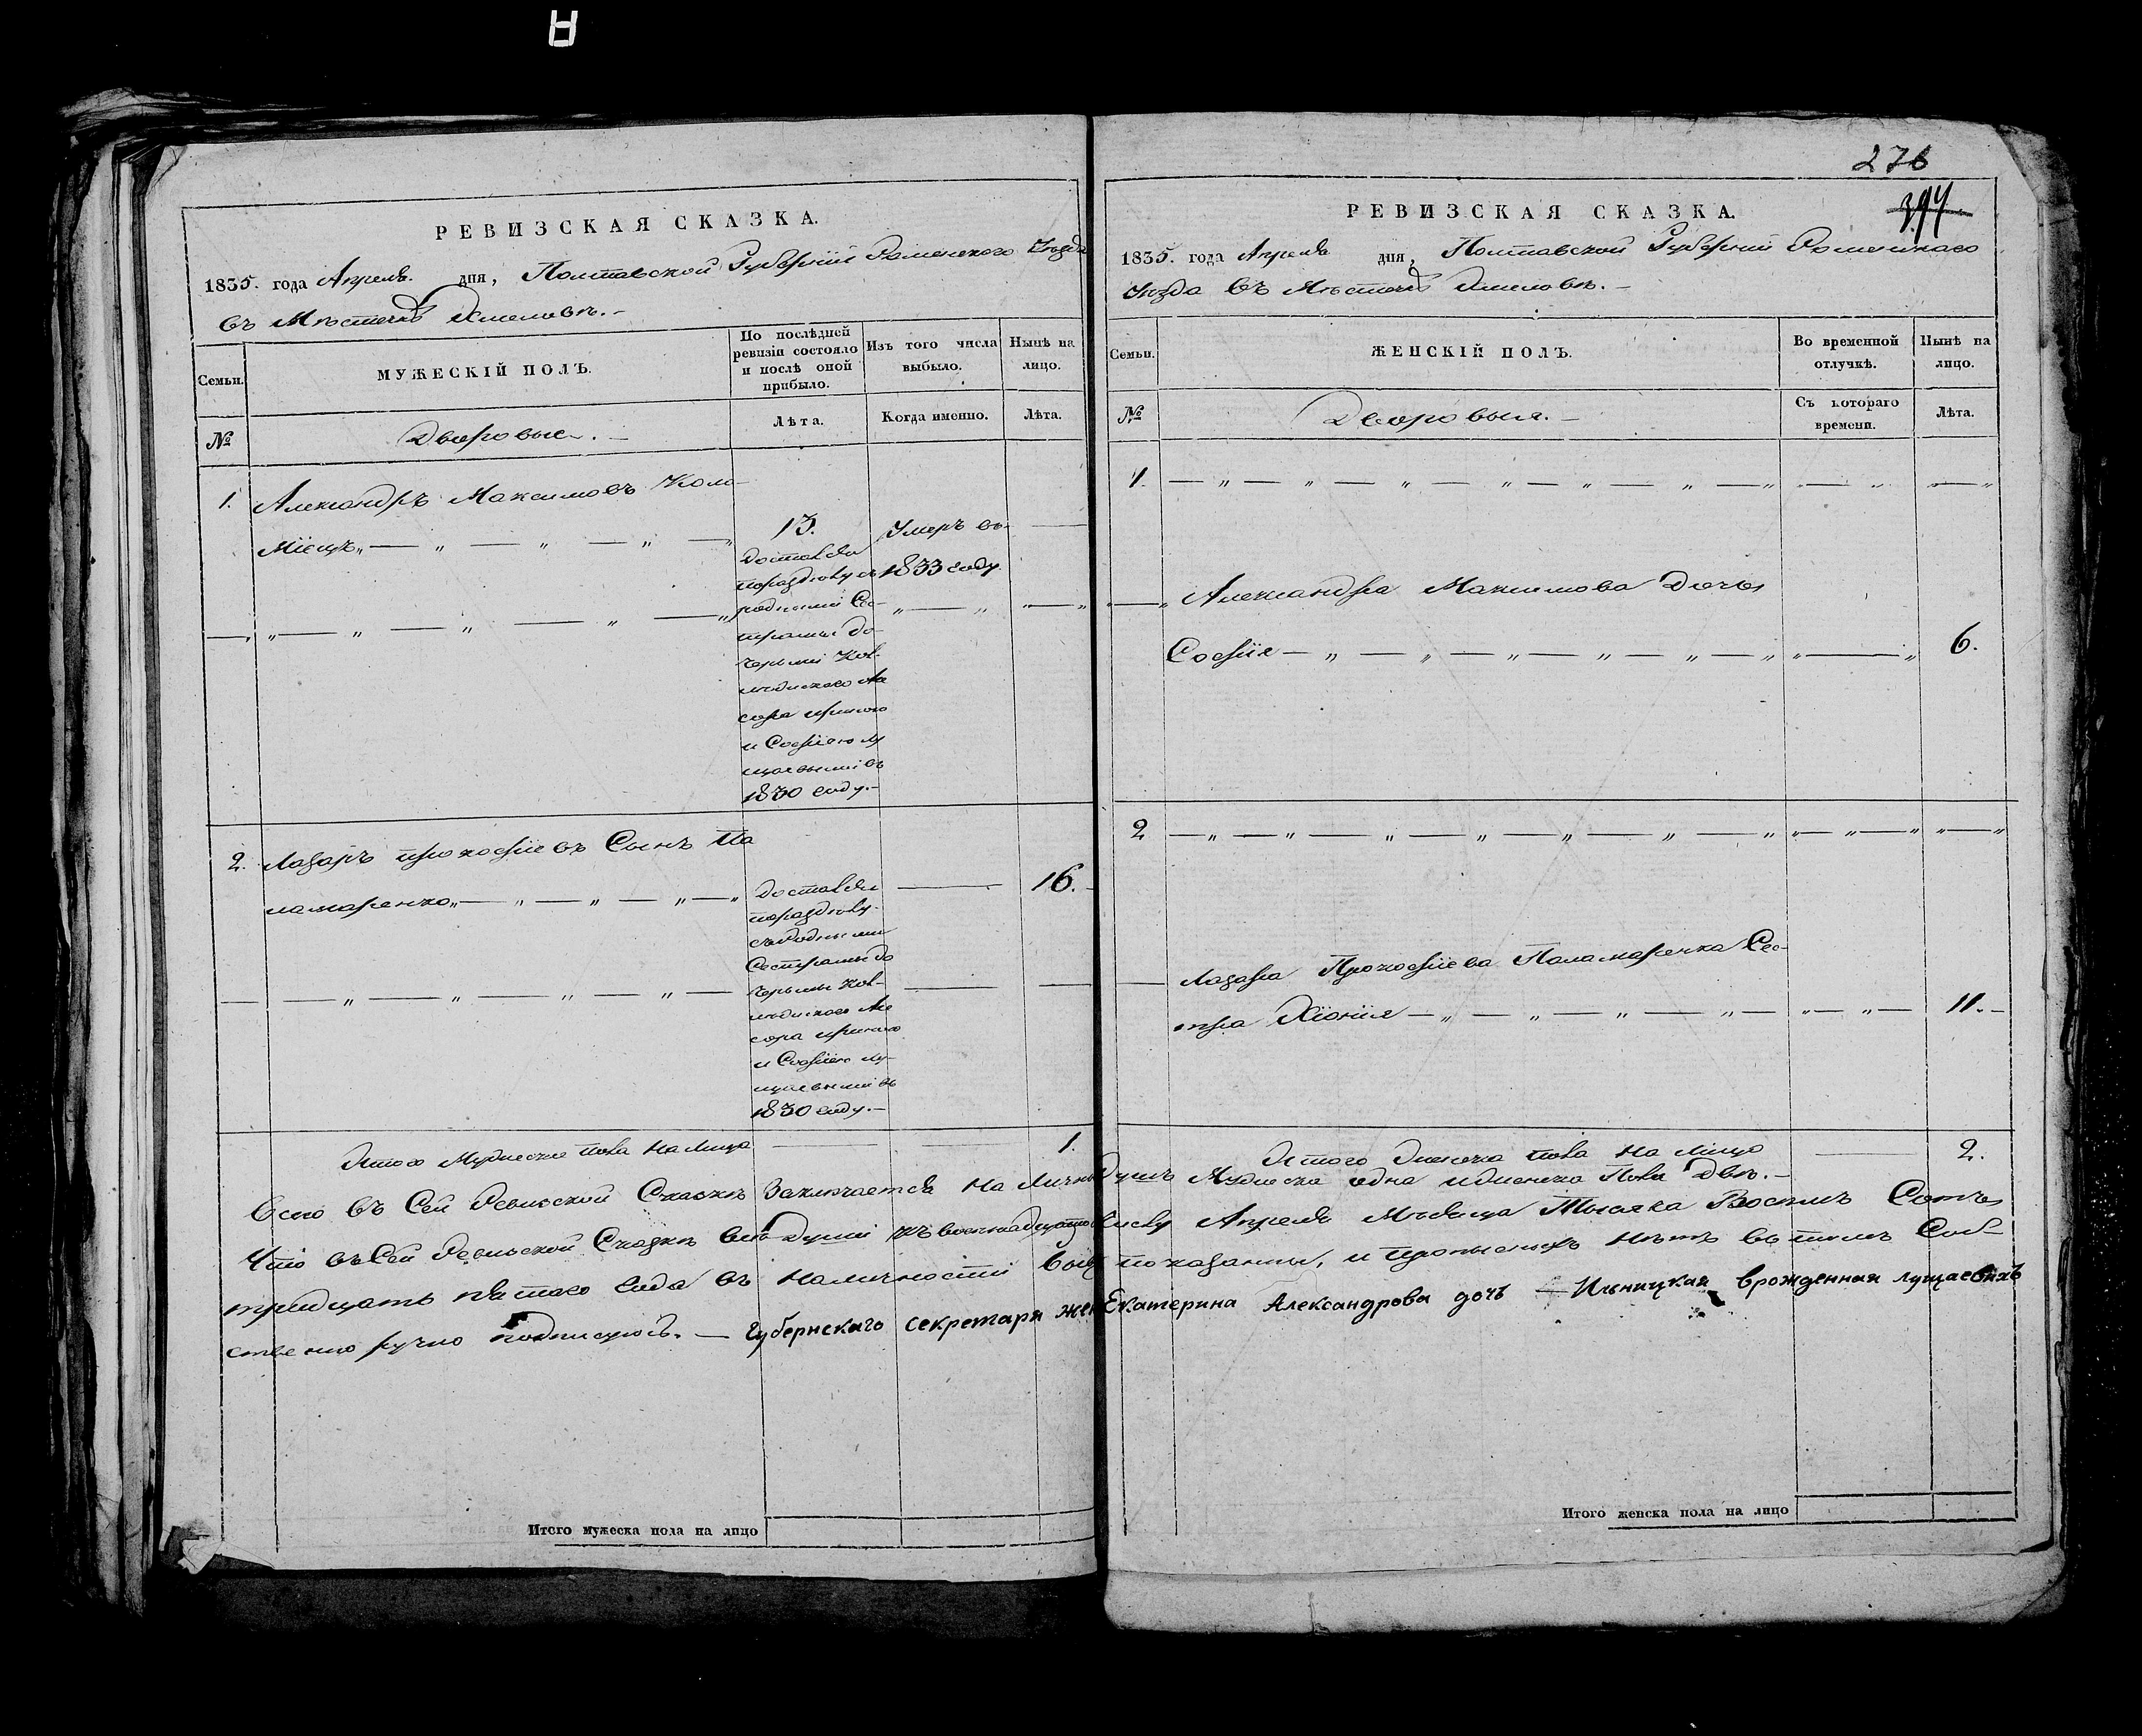 276
394
РЕВИЗСКАЯ СКАЗКА.
1835. года Апреля дня, Полтавской Губернiи Роменского Уезда
въ Мѣстечкѣ Хмеловѣ.
Семьи.
МУЖЕСКIЙ ПОЛЪ.
По послѣдней ревизiи состояло и послѣ оной прибыло.
Изъ того числа выбыло.
Нынѣ на лицо.
№
Дворовые.
Лѣта.
Когда именно.
Лѣта.
1. Александръ Максимовъ Коло-
мiецъ
13.
достался
поразделу съ
родными Сес-
трамы до-
черьми Кол-
лѣжского Ас
сора Ириною
и Софiею Лу
щаевыми въ
1830 году.
Умеръ въ
1833 году.
2. Лазарь Прокофiевъ Сынъ Па
ламаренко
достался
поразделу
съ Родными
Сестрамы до
черьмы Кол-
лѣжского Ас
сора Ириною
и Софiею Лу-
щаевыми въ
1830 году.
16.
Итого Мужеска пола на лицо
1.
Итого мужеска пола на лицо
РЕВИЗСКАЯ СКАЗКА.
1835. года Апреля дня, Полтавской Губернiи Роменского
Уезда въ Мѣстечкѣ Хмеловѣ.
Семьи.
ЖЕНСКIЙ ПОЛЪ.
Во временной отлучкѣ.
Нынѣ на лицо.
№
Дворовыя.
Съ котораго времени.
Лѣта.
1.
Александра Максимова дочь
Софiя
6.
2
Лазаря Прокофiева Паламаренка Сес-
тра Хiонiя
11.
Итого женска пола на лицо
2.
Всего въ Сей Ревизской Сказкѣ Заключается На Лично Душъ Мужеска одна и женска Пола двѣ.
Что въ Сей Ревизской Сказкѣ всѣ души къ восемнадцатому числу Апреля Мѣсяца Тысяча Восемъ Сотъ
тридцать пятого года въ наличности показанны, и прописныхъ нѣтъ въ томъ Соб-
ственно ручно подписуюсь. — Губернскаго секретаря жена Екатерина Александрова дочь Ильницкая врожденная Лущаевихъ
Итого женска пола на лицо